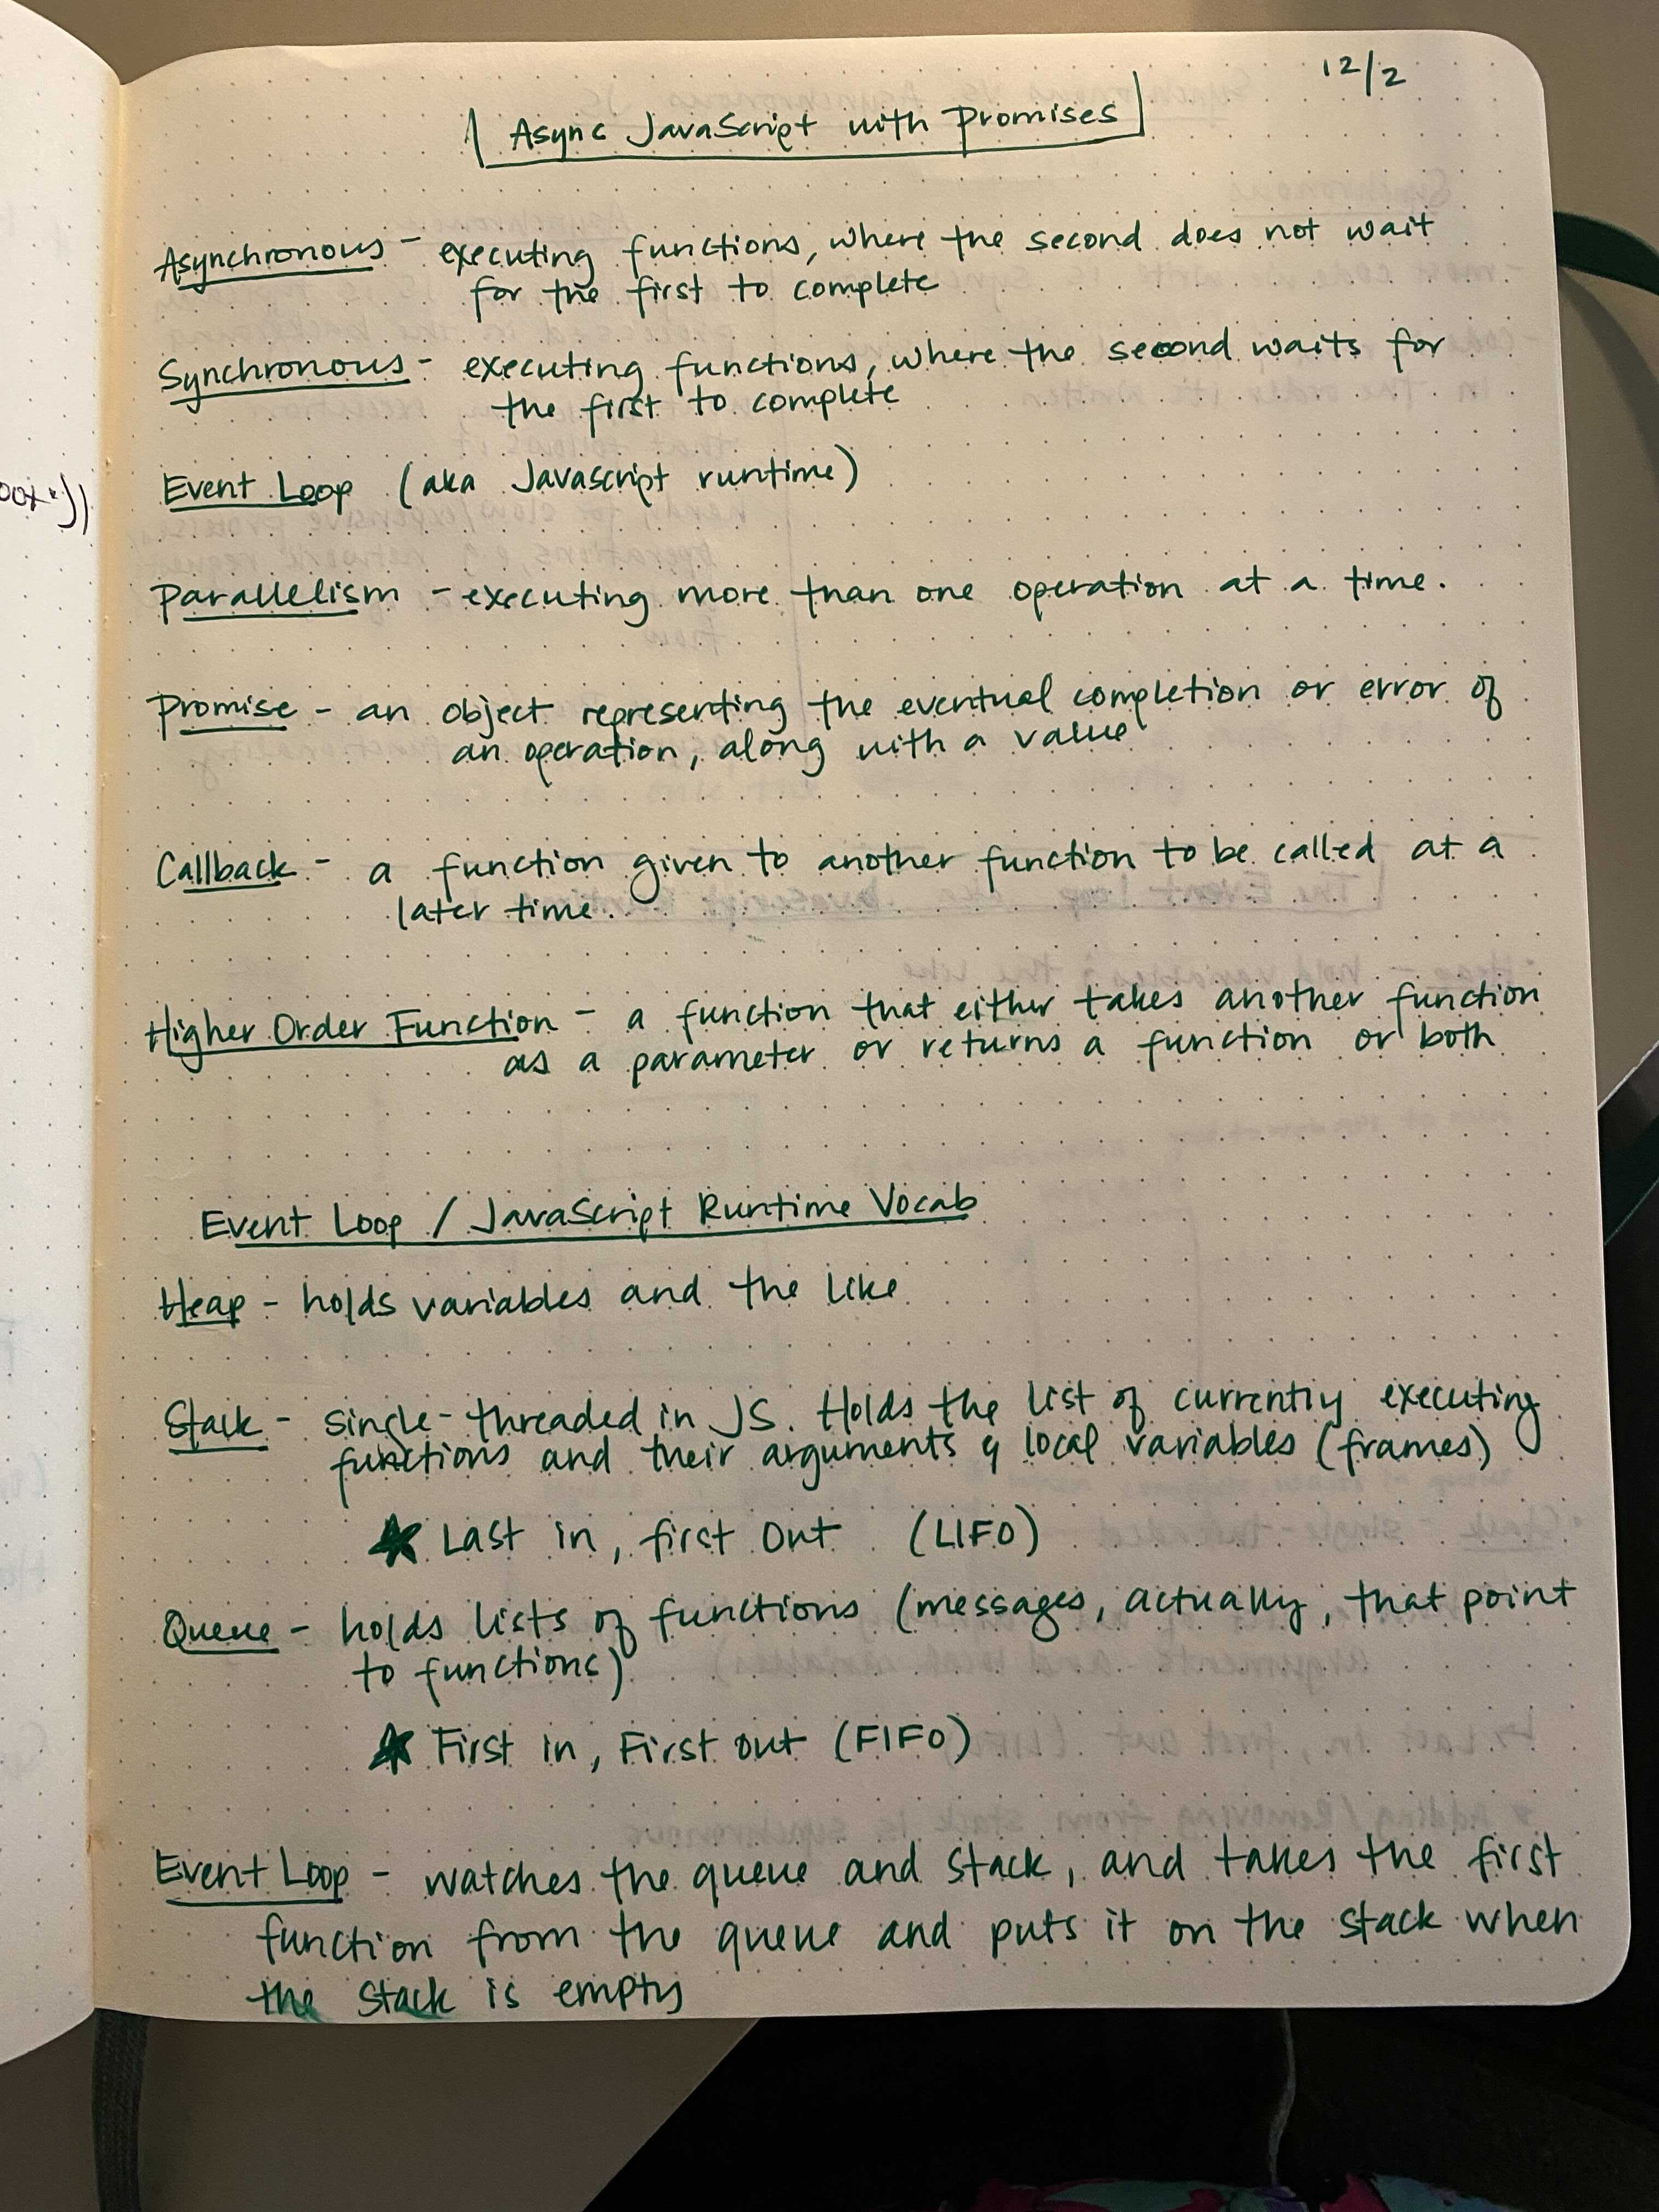 12/2
Async JavaScript with Promises
Asynchronous - executing functions, where the second does not wait
for the first to complete
Synchronous - executing functions, where the second waits for
the first to complete
Event Loop (aka Javascript runtime)
Parallelism - executing more than one operation at a time.
Promise - an object representing the eventual completion or error of
an operation, along with a value
Callback - a function given to another function to be called at a
later time.
Higher Order Function - a function that either takes another function
as a parameter or returns a function or both
Event Loop / JavaScript Runtime Vocab
Heap - holds variables and the like
Stack - single-threaded in JS. Holds the list of currently executing
functions and their arguments & local variables (frames)
★ Last in, first out (LIFO)
Queue - holds lists of functions (messages, actually, that point
to functions)
★ First in, First out (FIFO)
Event Loop - watches the queue and stack, and takes the first
function from the queue and puts it on the stack when
the stack is empty